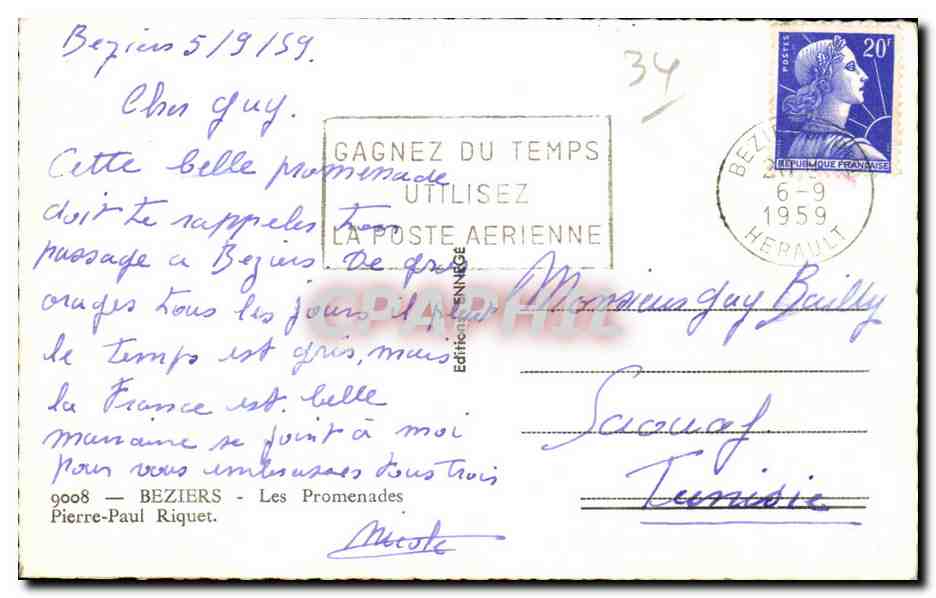 Beziers 5/9/59.
34
POSTES
20F
REPUBLIQUE FRANÇAISE
Cher Guy.
GAGNEZ DU TEMPS
UTILISEZ
LA POSTE AERIENNE
BEZIERS
6-9
1959
HERAULT
Cette belle promenade
doit te rappeler ton
passage a Beziers. De gros
orages tous les jours il pleut
le temps est gris, mais
la France est belle
marraine se joint à moi
pour vous embrasser tous trois
Nicole
Editions
CPAPHIL
Monsieur Guy Bailly
Saouaf
Tunisie
9008 — BEZIERS - Les Promenades
Pierre-Paul Riquet.